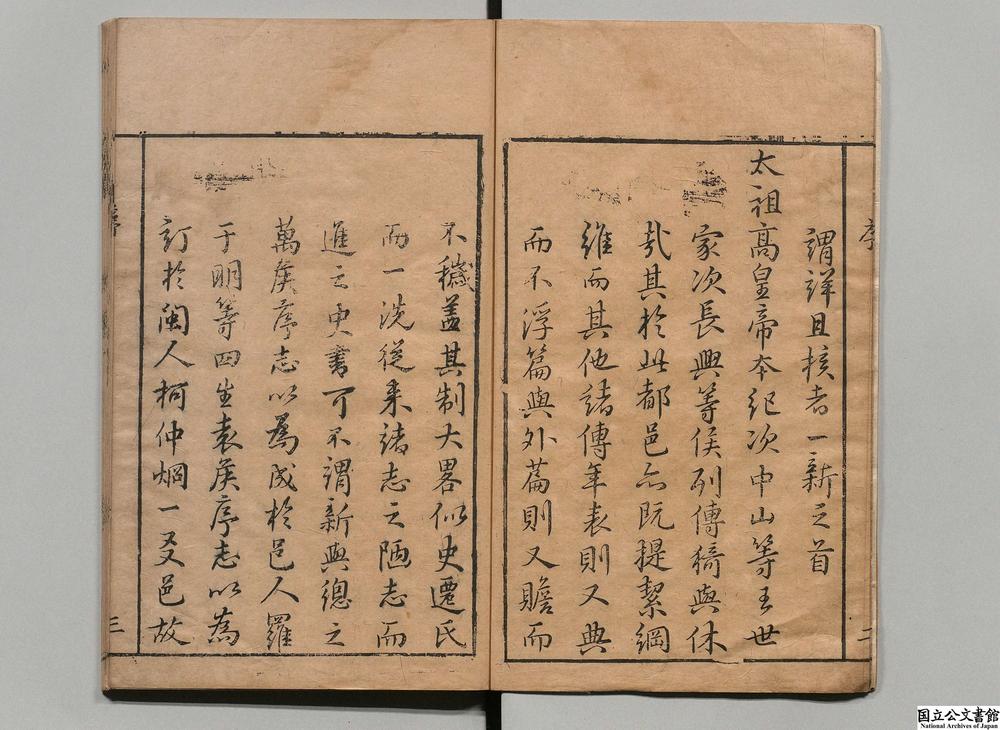 謂詳且核者一新之首
太祖高皇帝本紀次中山等王世
家次長興等侯列傳猗與休
哉其於此都邑亦既提絜綱
維而其他諸傳年表則又典
而不浮篇與外篇則又贍而
序
二
不穢盖其制大畧似史遷氏
而一洗從来諸志之陋志而
進之史書可不謂新與總之
萬侯序志以爲成於邑人羅
于明等四生袁侯序志以為
訂於閩人柯仲烱一又邑故
序
三
国立公文書館
National Archives of Japan